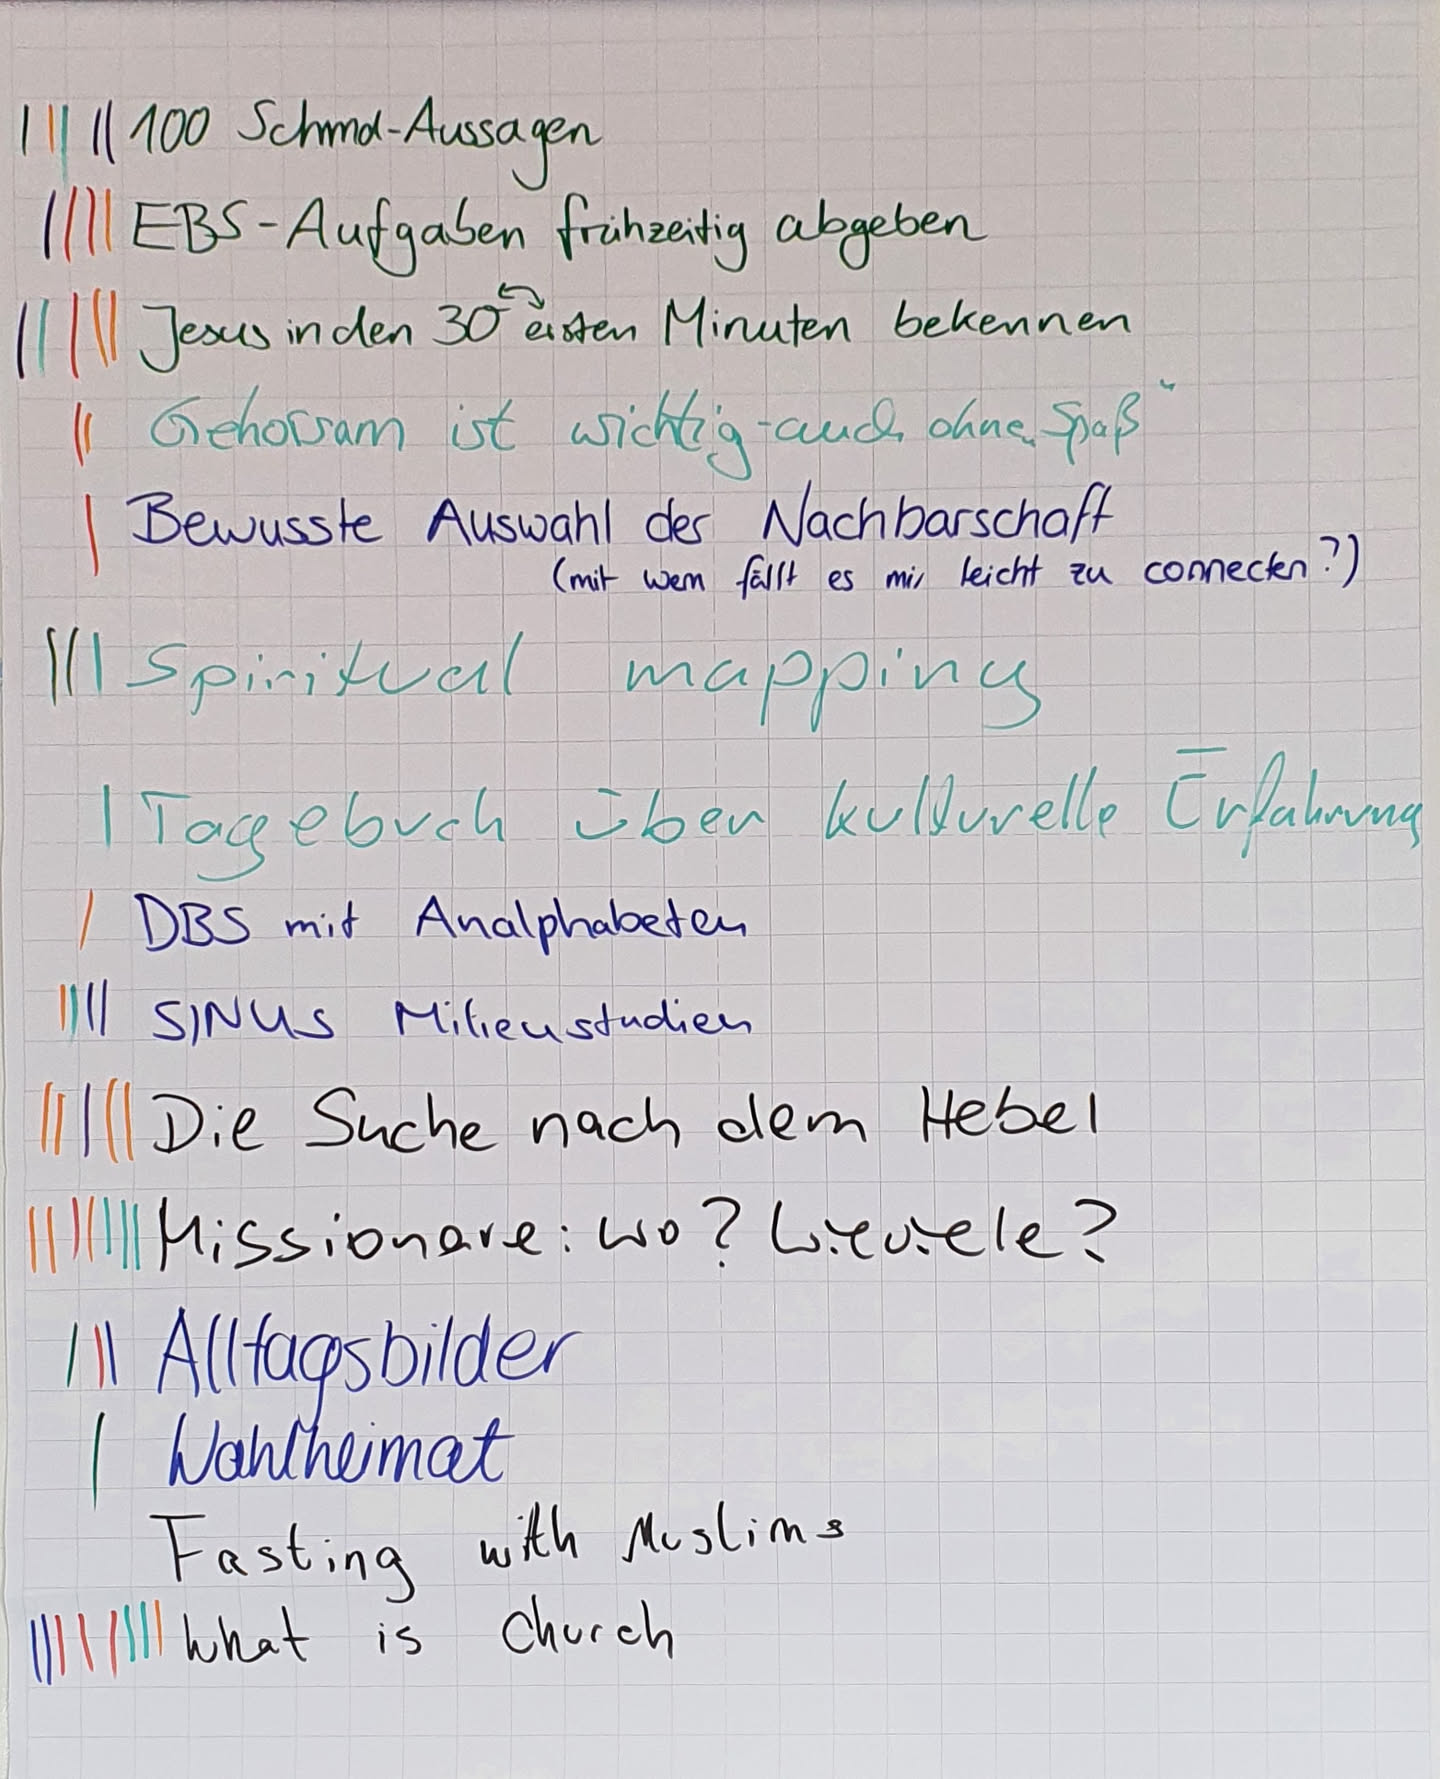 100 Schmd-Aussagen
EBS-Aufgaben frühzeitig abgeben
Jesus in den 30 ersten Minuten bekennen
Gehorsam ist wichtig - auch ohne „Spaß“
Bewusste Auswahl der Nachbarschaft
(mit wem fällt es mir leicht zu connecten?)
Spiritual mapping
Tagebuch über kulturelle Erfahrung
DBS mit Analphabeten
SINUS Milieustudien
Die Suche nach dem Hebel
Missionare: wo? Wieviele?
Alltagsbilder
Wahlheimat
Fasting with Muslims
What is Church